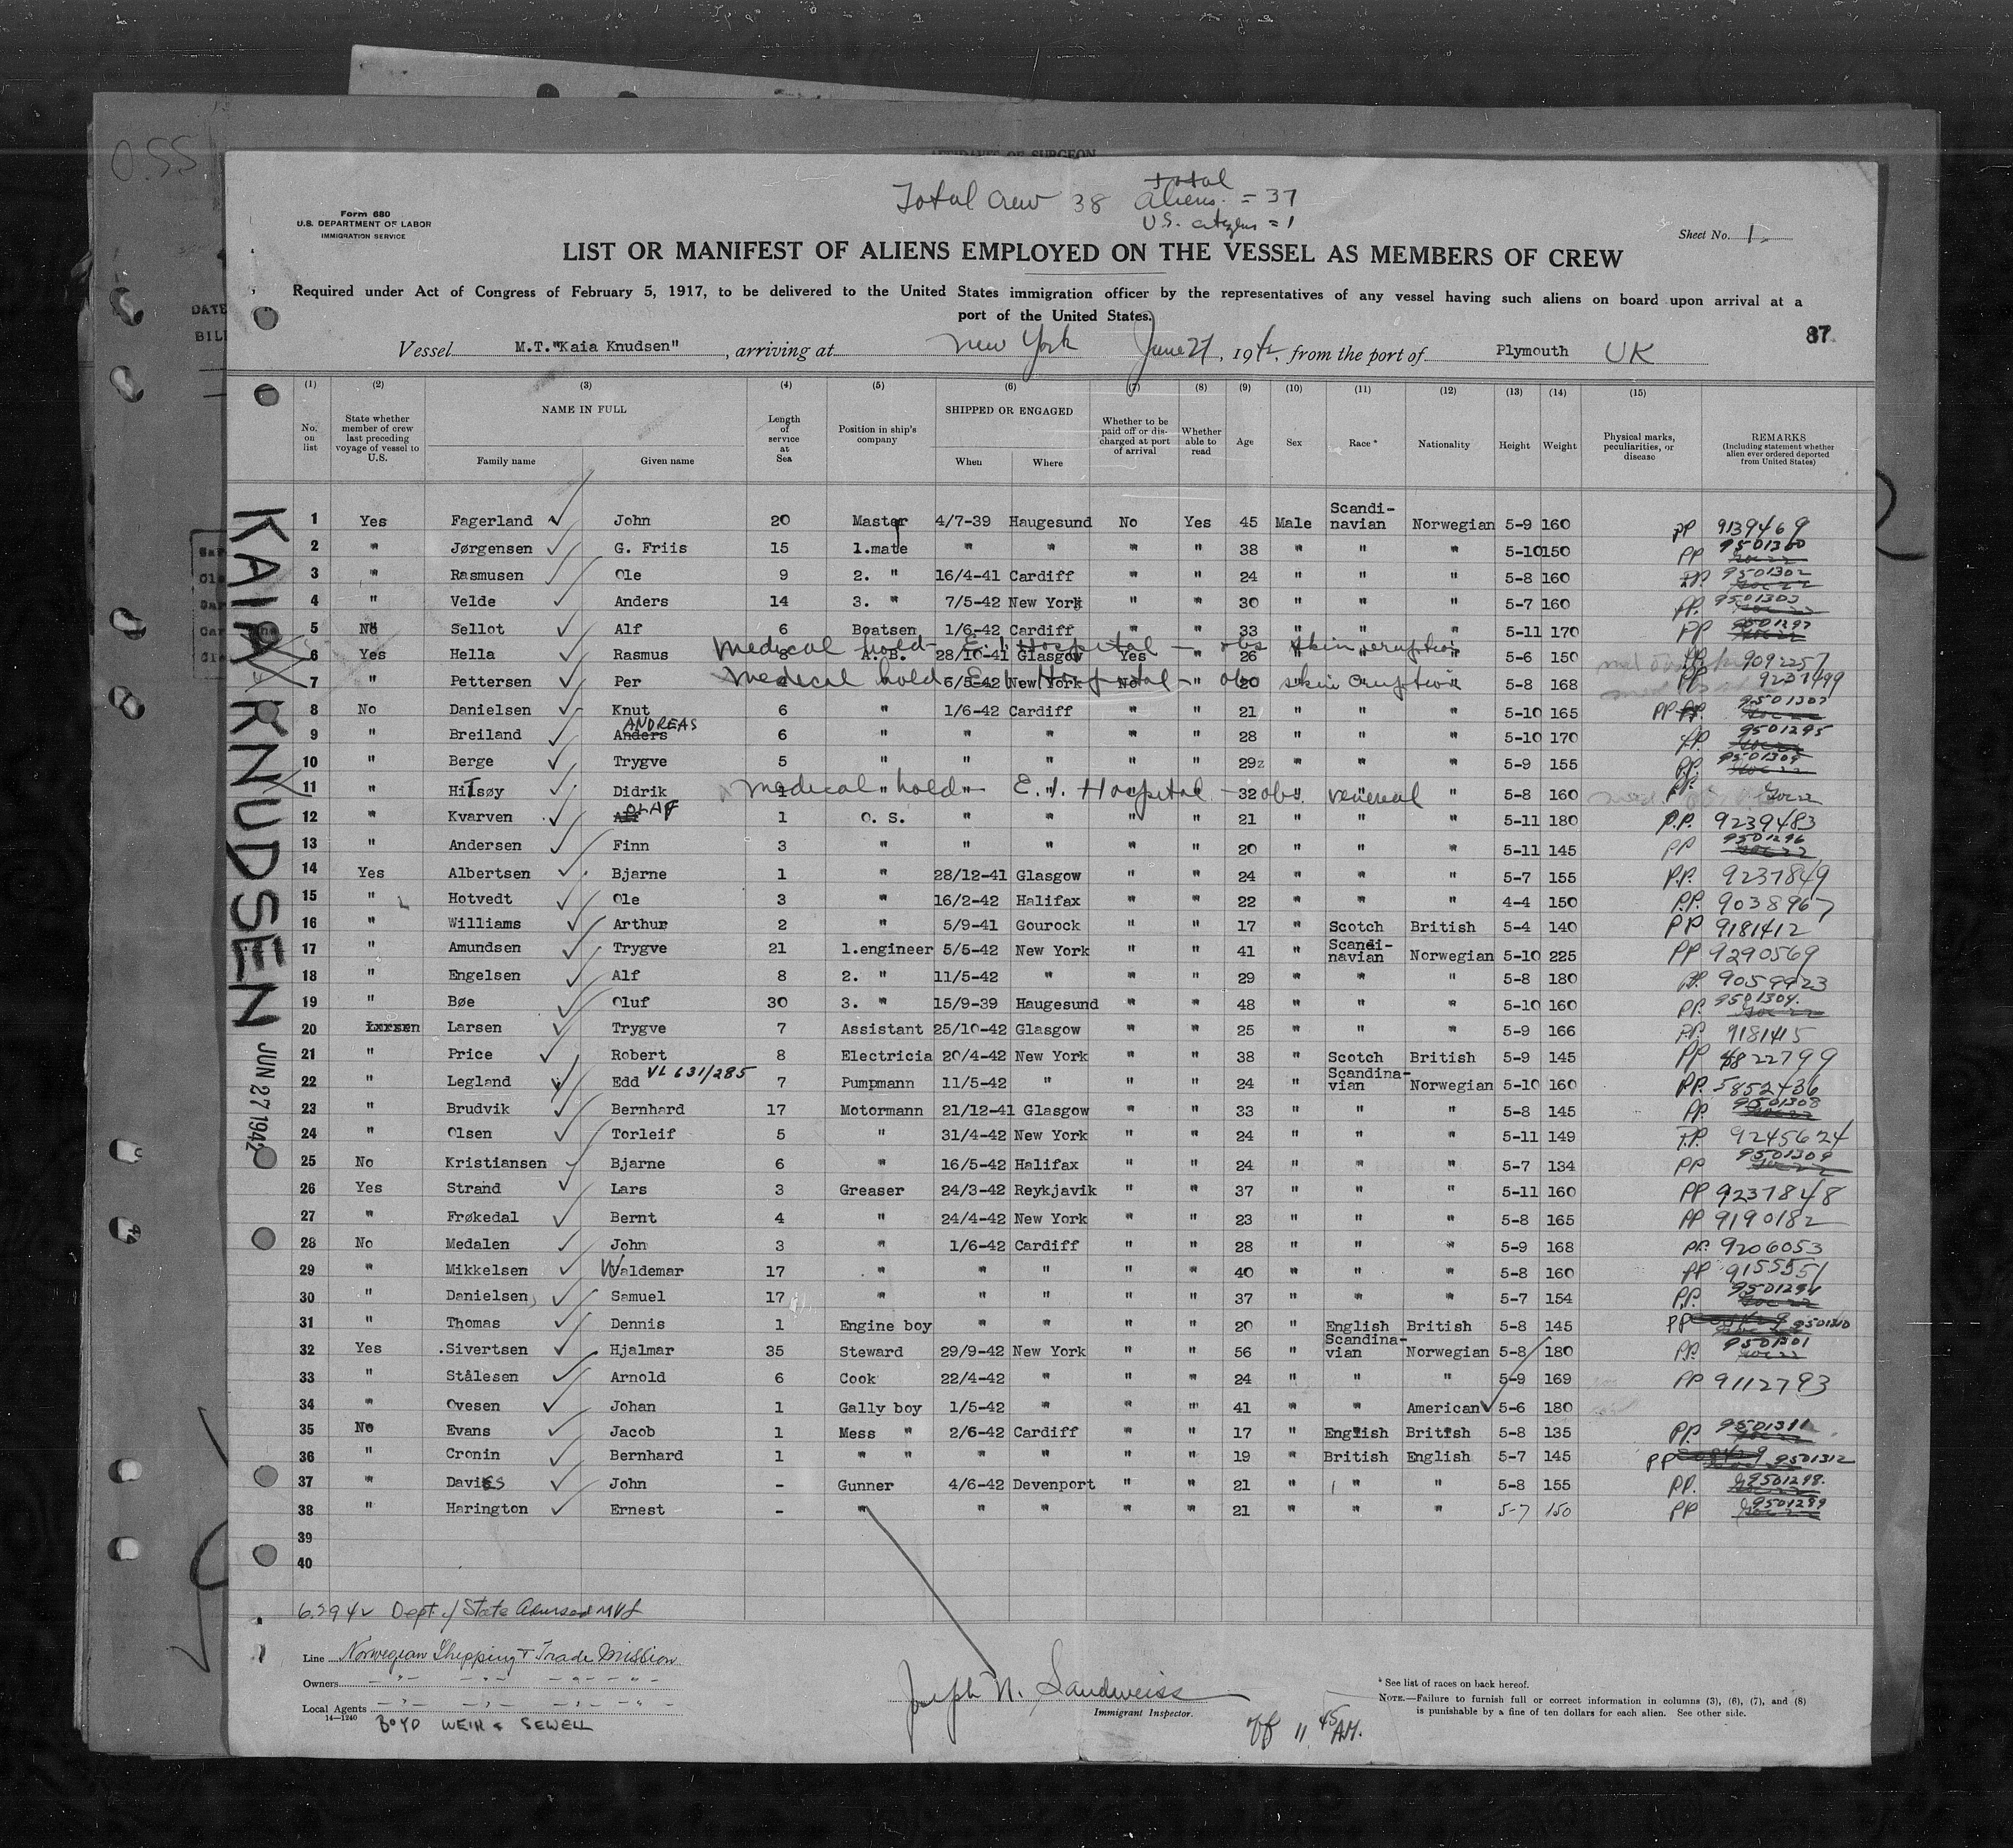 O.S.S
AFFIDAVIT OF SURGEON
Total crew 38 total aliens = 37
U.S. citizens = 1
Form 680
U.S. DEPARTMENT OF LABOR
IMMIGRATION SERVICE
Sheet No. 1
LIST OR MANIFEST OF ALIENS EMPLOYED ON THE VESSEL AS MEMBERS OF CREW
Required under Act of Congress of February 5, 1917, to be delivered to the United States immigration officer by the representatives of any vessel having such aliens on board upon arrival at a
port of the United States.
87
Vessel M.T."Kaia Knudsen", arriving at New York June 27, 1942, from the port of Plymouth UK
(1) (2) (3) (4) (5) (6) (7) (8) (9) (10) (11) (12) (13) (14) (15)
No. on list State whether member of crew last preceding voyage of vessel to U.S. NAME IN FULL Family name Given name Length of service at Sea Position in ship's company SHIPPED OR ENGAGED When Where Whether to be paid off or discharged at port of arrival Whether able to read Age Sex Race* Nationality Height Weight Physical marks, peculiarities, or disease REMARKS (Including statement whether alien ever ordered deported from United States)
1 Yes Fagerland John 20 Master 4/7-39 Haugesund No Yes 45 Male Scandi-navian Norwegian 5-9 160 PP 9139469
2 " Jørgensen G. Friis 15 1.mate " " " " 38 " " " 5-10 150 PP 9501300
3 " Rasmusen Ole 9 2. " 16/4-41 Cardiff " " 24 " " " 5-8 160 PP 9501302
4 " Velde Anders 14 3. " 7/5-42 New York " " 30 " " " 5-7 160 PP. 9501303
5 No Sellot Alf 6 Boatsen 1/6-42 Cardiff " " 33 " " " 5-11 170 PP 9501297
Medical hold - E.I. Hospital - obs skin eruption
6 Yes Hella Rasmus 8 A. B. 28/10-41 Glasgow Yes " 26 " " " 5-6 150 PP 9092257
Medical hold E.I. Hospital - obs skin eruption
7 " Pettersen Per " 6/5-42 New York No " 20 " " " 5-8 168 PP 9237499
8 No Danielsen Knut 6 " 1/6-42 Cardiff " " 21 " " " 5-10 165 PP 9501307
9 " Breiland Anders ANDREAS 6 " " " " " 28 " " " 5-10 170 PP. 9501295
10 " Berge Trygve 5 " " " " " 29 " " " 5-9 155 PP. 9501304
Medical hold - E.I. Hospital - obs. venereal
11 " Hitsøy Didrik " " " " " 32 " " " 5-8 160 PP.
12 " Kvarven Alf OLAF 1 O. S. " " " " 21 " " " 5-11 180 P.P. 9239483
13 " Andersen Finn 3 " " " " " 20 " " " 5-11 145 PP 9501296
14 Yes Albertsen Bjarne 1 " 28/12-41 Glasgow " " 24 " " " 5-7 155 P.P. 9237849
15 " Hotvedt Ole 3 " 16/2-42 Halifax " " 22 " " " 4-4 150 P.P. 9038967
16 " Williams Arthur 2 " 5/9-41 Gourock " " 17 " Scotch British 5-4 140 PP 9181412
17 " Amundsen Trygve 21 1.engineer 5/5-42 New York " " 41 " Scandi-navian Norwegian 5-10 225 PP 9290569
18 " Engelsen Alf 8 2. " 11/5-42 " " " 29 " " " 5-8 180 PP. 9059923
19 " Bøe Oluf 30 3. " 15/9-39 Haugesund " " 48 " " " 5-10 160 PP. 9501304.
20 Larsen Larsen Trygve 7 Assistant 25/10-42 Glasgow " " 25 " " " 5-9 166 P.P. 9181415
21 " Price Robert 8 Electricia 20/4-42 New York " " 38 " Scotch British 5-9 145 PP 4822799
22 " Legland Edd VL 631/285 7 Pumpmann 11/5-42 " " " 24 " Scandina-vian Norwegian 5-10 160 P.P. 5852436
23 " Brudvik Bernhard 17 Motormann 21/12-41 Glasgow " " 33 " " " 5-8 145 PP. 9501308
24 " Olsen Torleif 5 " 31/4-42 New York " " 24 " " " 5-11 149 P.P. 9245624
25 No Kristiansen Bjarne 6 " 16/5-42 Halifax " " 24 " " " 5-7 134 PP 9501309
26 Yes Strand Lars 3 Greaser 24/3-42 Reykjavik " " 37 " " " 5-11 160 PP 9237848
27 " Frøkedal Bernt 4 " 24/4-42 New York " " 23 " " " 5-8 165 PP 9190182
28 No Medalen John 3 " 1/6-42 Cardiff " " 28 " " " 5-9 168 PP. 9206053
29 " Mikkelsen Waldemar 17 " " " " " 40 " " " 5-8 160 PP 9155551
30 " Danielsen Samuel 17 " " " " " 37 " " " 5-7 154 P.P. 9501294
31 " Thomas Dennis 1 Engine boy " " " " 20 " English British 5-8 145 PP 9501310
32 Yes Sivertsen Hjalmar 35 Steward 29/9-42 New York " " 56 " Scandina-vian Norwegian 5-8 180 PP. 9501301
33 " Stålesen Arnold 6 Cook 22/4-42 " " " 24 " " " 5-9 169 PP 9112793
34 " Ovesen Johan 1 Gally boy 1/5-42 " " " 41 " " American 5-6 180
35 No Evans Jacob 1 Mess " 2/6-42 Cardiff " " 17 " English British 5-8 135 PP. 9501311
36 " Cronin Bernhard 1 " " " " " " 19 " British English 5-7 145 PP 9501312
37 " Davies John - Gunner 4/6-42 Devenport " " 21 " " " 5-8 155 PP. 9501298.
38 " Harington Ernest - " " " " " 21 " " " 5-7 150 PP 9501299
39
40
KAIA KNUDSEN
JUN 27 1942
6.29 42 Dept of State Advised
Line Norwegian Shipping & Trade Mission
Owners
Local Agents
14—1240
BOYD WEIR & SEWELL
Joseph N. Sandweiss
Immigrant Inspector.
off 11 45 AM.
* See list of races on back hereof.
NOTE.—Failure to furnish full or correct information in columns (3), (6), (7), and (8)
is punishable by a fine of ten dollars for each alien. See other side.